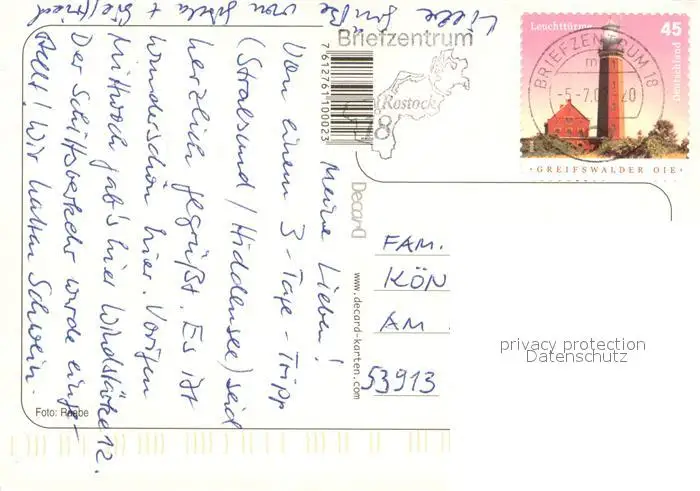 Meine Lieben!
Von einem 3-Tage-Tripp
(Stralsund/Hiddensee) seid
herzlich gegrüßt. Es ist
wunderschön hier. Vorigen
Mittwoch gab's hier Windstärke 12.
Der Schiffsverkehr wurde einge-
stellt! Wir hatten Schwein.
Liebe Grüße von
Siegfried
Briefzentrum
Rostock
18
7612761100023
Leuchttürme
45
Deutschland
BRIEFZENTRUM 18
GREIFSWALDER OIE
FAM.
KÖN
AM
53913
DecarD
www.decard-karten.com
privacy protection
Datenschutz
Foto: Raabe